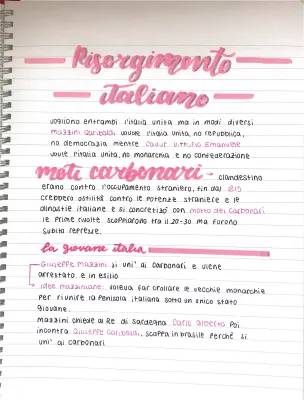 Risorgimento
italiano
vogliono entrambi l'italia unita ma in modi diversi
Mazzini Garibaldi vuole l'italia unita, no repubblica,
no democrazia mentre Cavour Vittorio Emanuele
vuole l'italia unita, no monarchia e no confederazione
moti carbonari - clandestino
erano contro l'occupamento straniero, fin dal 815
crebbero ostilità contro le potenze straniere e le
dinastie italiane e si concretizzò con motto dei carbonari
le prime rivolte scoppiarono tra il 20-30 ma furono
subito represse.
la giovane italia
Giuseppe Mazzini si unì ai carbonari e viene
arrestato e in esilio
idee mazziniane: voleva far crollare le vecchie monarchie
per riunire la Penisola italiana sotto un unico stato
giovane.
mazzini chiede al Re di Sardegna Carlo Alberto poi
incontra Giuseppe Garibaldi, scappa in brasile perchè si
unì ai carbonari